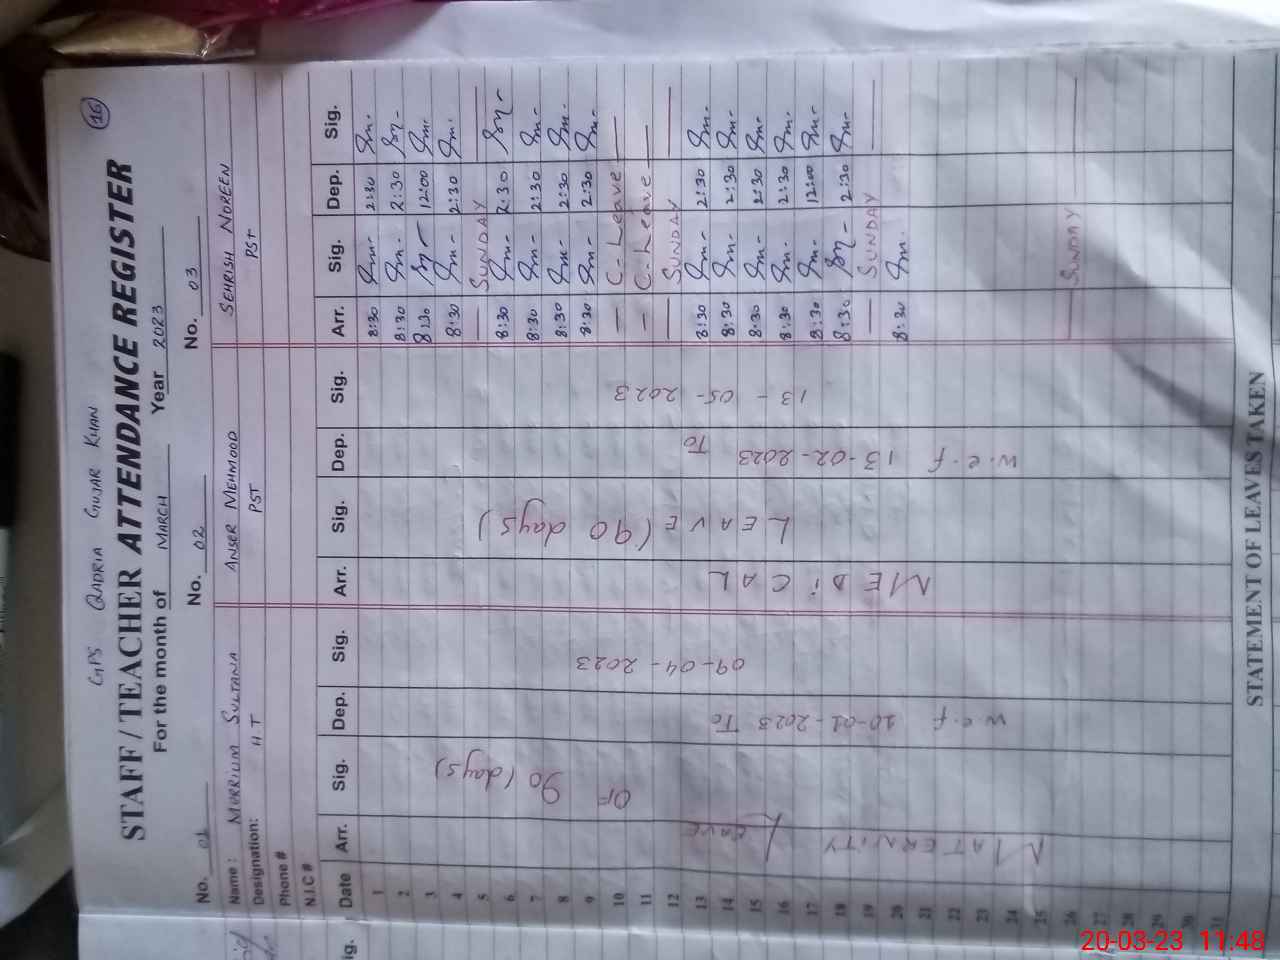 GPS QADRIA GUJAR KHAN
16
STAFF / TEACHER ATTENDANCE REGISTER
For the month of MARCH Year 2023
No. 01 No. 02 No. 03
Name : MURRIUM SULTANA ANSER MEHMOOD SEHRISH NOREEN
Designation: H.T PST PST
Phone #
N.I.C #
Date Arr. Sig. Dep. Sig. Arr. Sig. Dep. Sig. Arr. Sig. Dep. Sig.
1 8:30 2:30
2 8:30 2:30
3 8:30 12:00
4 8:30 2:30
5 SUNDAY
6 8:30 2:30
7 8:30 2:30
8 8:30 2:30
9 8:30 2:30
10 C-Leave
11 C-Leave
12 SUNDAY
13 8:30 2:30
14 8:30 2:30
15 8:30 2:30
16 8:30 2:30
17 8:30 12:00
18 8:30 2:30
19 SUNDAY
20 8:30
21
22
23
24
25
26 SUNDAY
27
28
29
30
31
MATERNITY Leave
OF 90 (days)
w.e.f 10-01-2023 To
09-04-2023
MEDiCAL
LEAVE (90 days)
w.e.f 13-02-2023 To
13-05-2023
STATEMENT OF LEAVES TAKEN
ig.
20-03-23 11:48